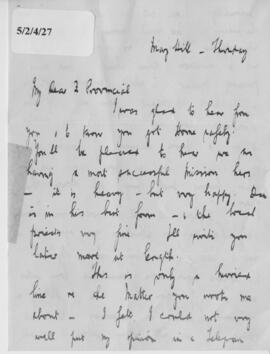 5/2/4/27
May Hill - Thursday
My dear Fr Provincial
I was glad to hear from
you, & to know you got home safely!
You'll be pleased to hear we are
having a most successful mission here
- it is heavy - but very happy.
is in his best form - & the local
priests very fine I'll write you
later more at length.
This is only a hurried
line re the matter you wrote me
about - I felt I could not very
well put my opinion in a Telegram